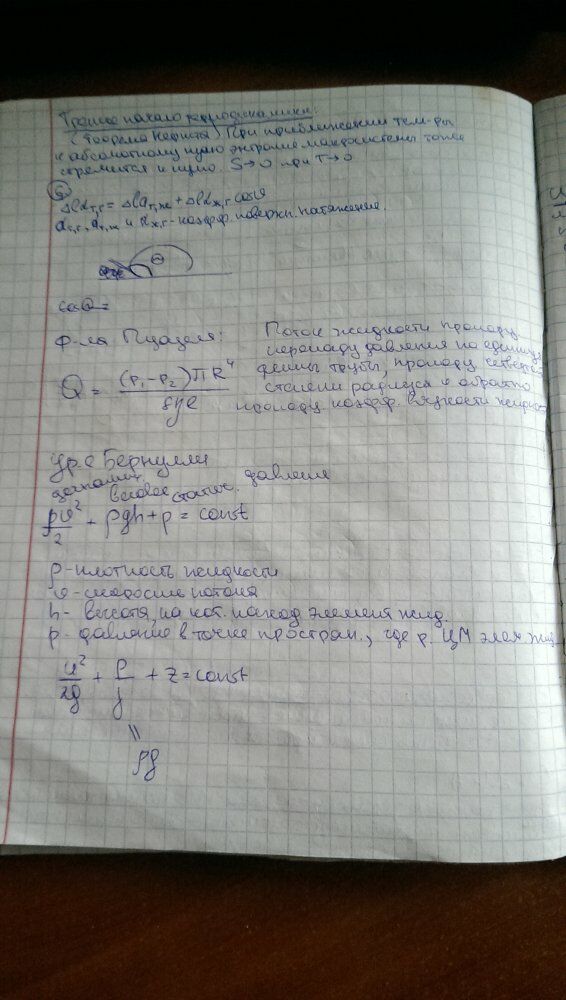 Третье начало термодинамики:
(теорема Нернста) При приближении тем-ры
к абсолютному нулю энтропия макросистемы также
стремится к нулю. S→0 при T→0
Δlα т,г = Δlα т,ж + Δlα ж,г cosθ
α т,г, α т,ж и α ж,г - коэфф. поверхн. натяжения.
cosθ =
Ф-ла Пуазеля:
Q = (p₁-p₂)πR⁴ / 8ηl
Поток жидкости пропорц.
перепаду давления на единицу
длины трубы, пропорц. четвертой
степени радиуса и обратно
пропорц. коэфф. вязкости жидкости
Ур-е Бернулли
весовое статич. давления
ρv²/2 + ρgh + p = const
ρ - плотность жидкости
v - скорость потока
h - высота, на кот. наход. элемент жид.
p - давление в точке простран., где р. ЦМ элем. жид.
u²/2g + P/γ + z = const
||
ρg